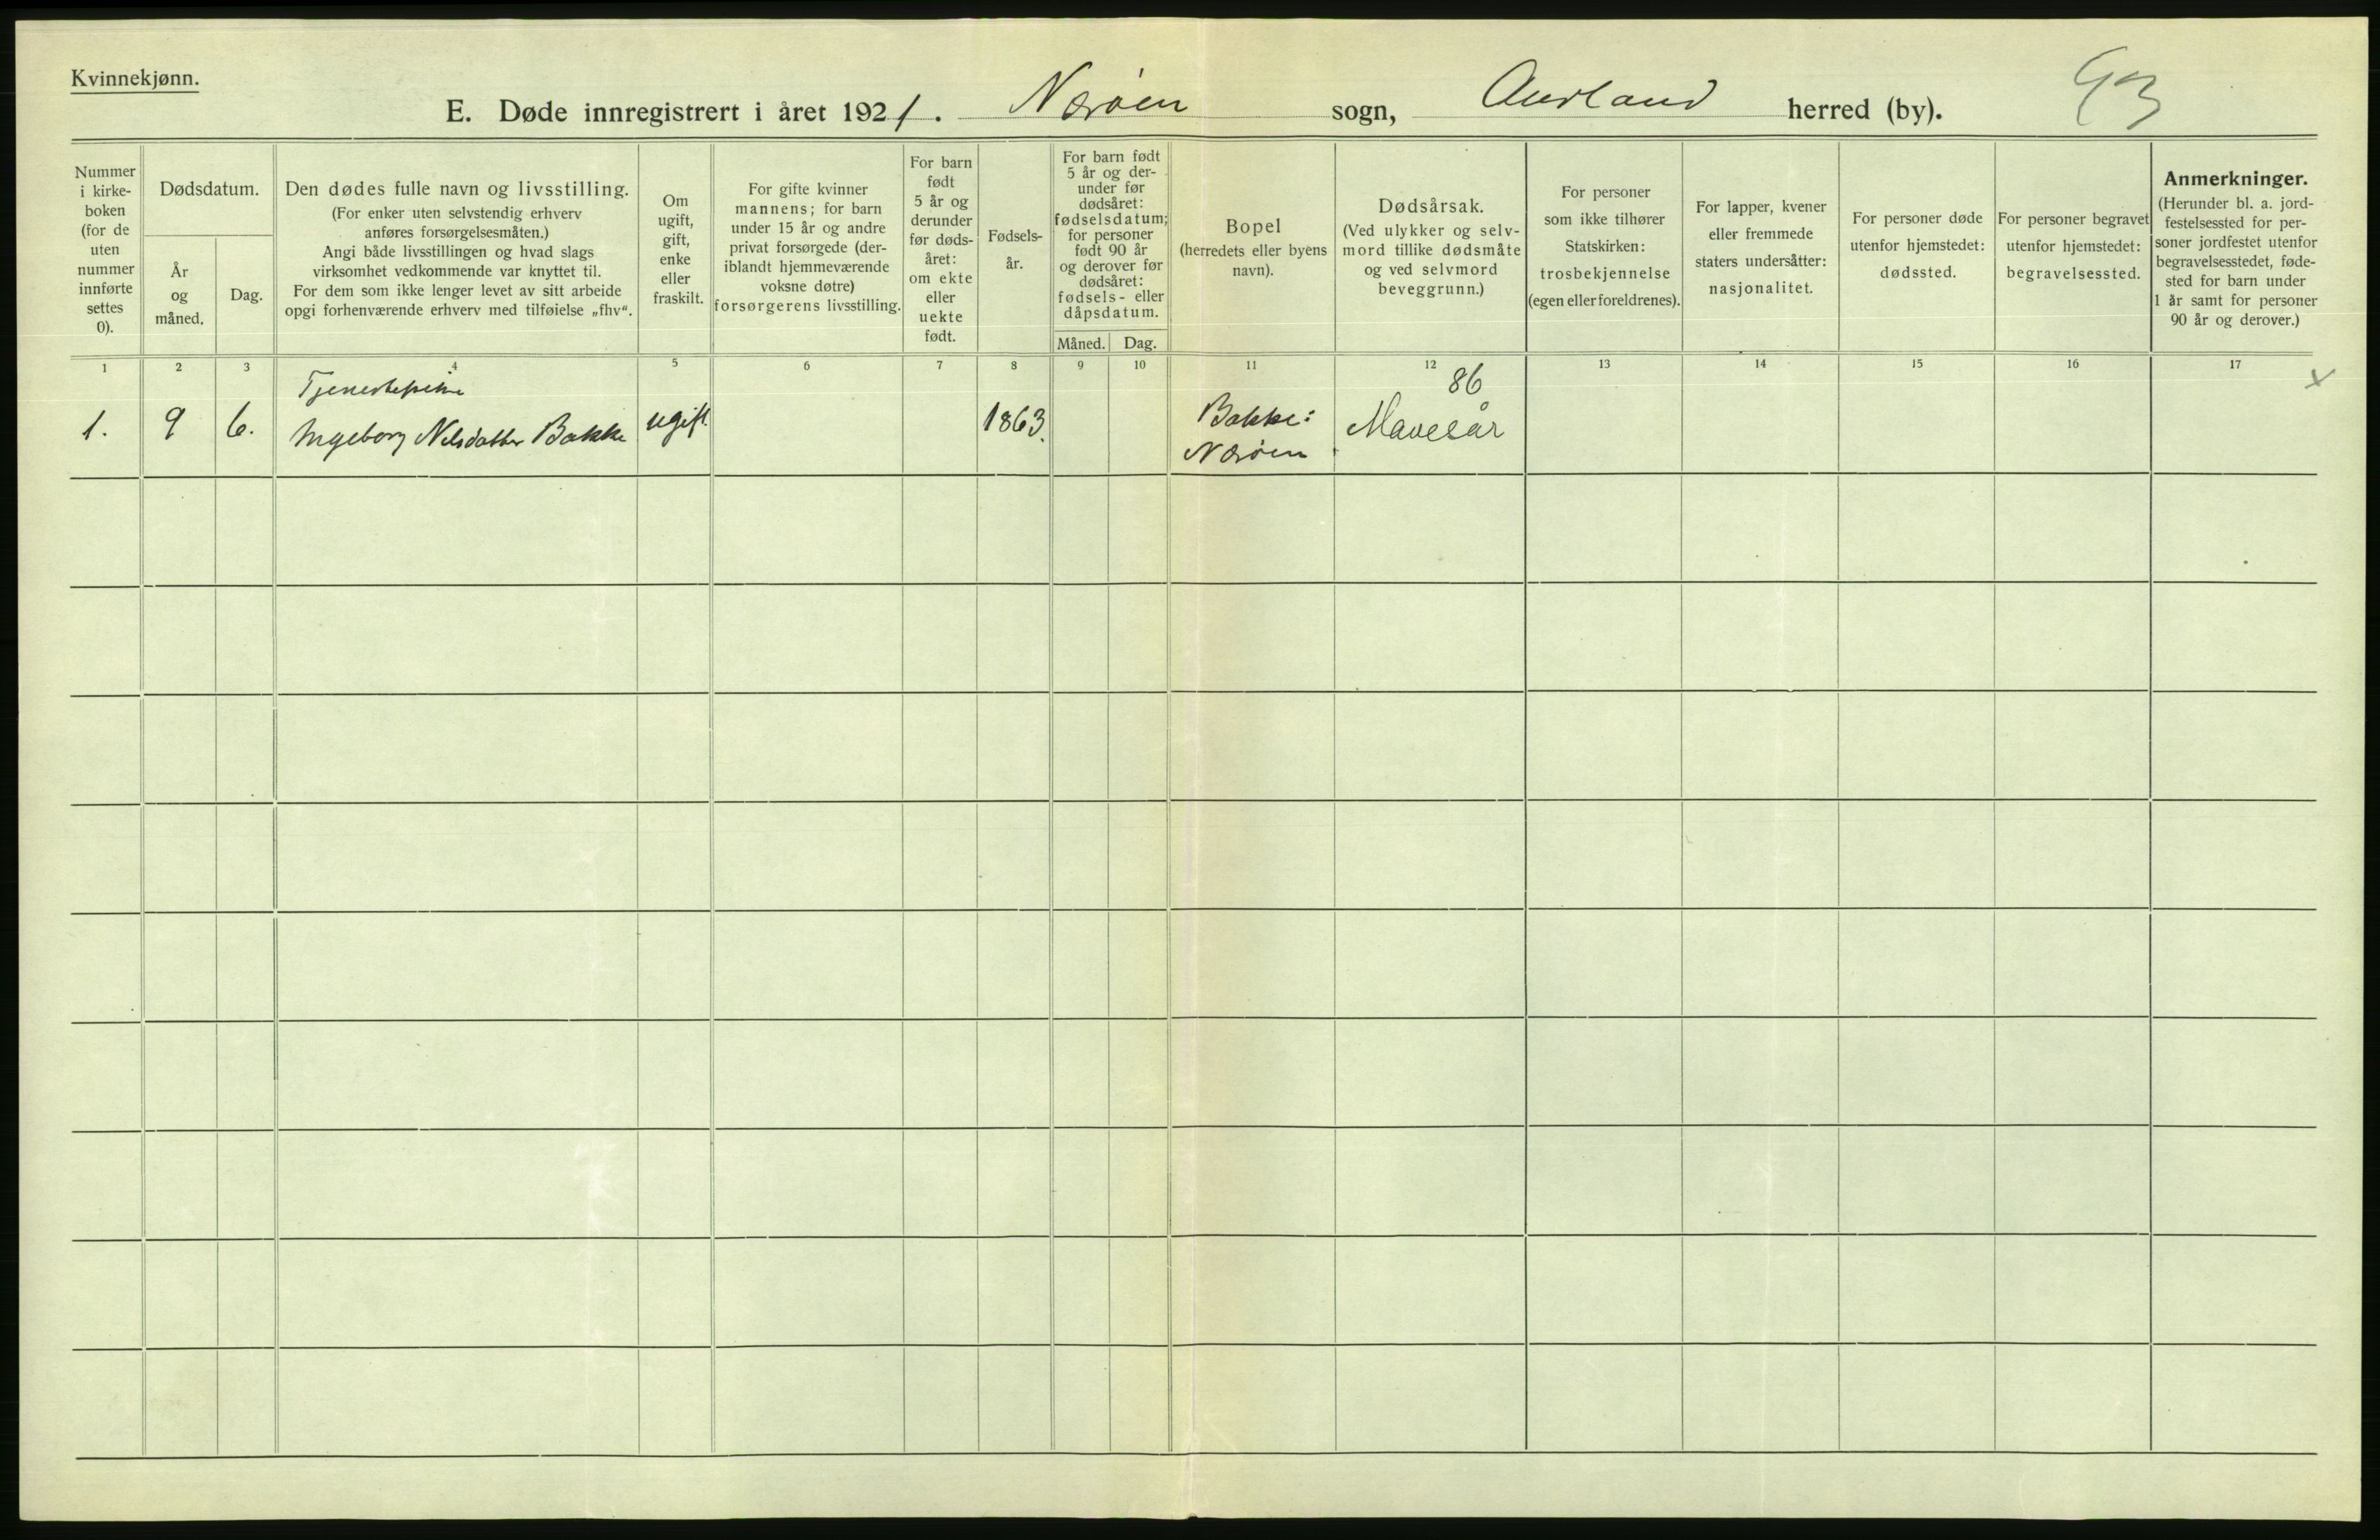 Kvinnekjønn.
E. Døde innregistrert i året 1921. Nærøen sogn, Aurland herred (by). 93
Nummer i kirke-boken (for de uten nummer innførte settes 0).
Dødsdatum.
År og måned.
Dag.
Den dødes fulle navn og livsstilling.
(For enker uten selvstendig erhverv
anføres forsørgelsesmåten.)
Angi både livsstillingen og hvad slags
virksomhet vedkommende var knyttet til.
For dem som ikke lenger levet av sitt arbeide
opgi forhenværende erhverv med tilføielse „fhv“.
Om
ugift,
gift,
enke
eller
fraskilt.
For gifte kvinner
mannens; for barn
under 15 år og andre
privat forsørgede (der-
iblandt hjemmeværende
voksne døtre)
forsørgerens livsstilling.
For barn
født
5 år og
derunder
før døds-
året:
om ekte
eller
uekte
født.
Fødsels-
år.
For barn født
5 år og der-
under før
dødsåret:
fødselsdatum;
for personer
født 90 år
og derover før
dødsåret:
fødsels- eller
dåpsdatum.
Måned.
Dag.
Bopel
(herredets eller byens
navn).
Dødsårsak.
(Ved ulykker og selv-
mord tillike dødsmåte
og ved selvmord
beveggrunn.)
For personer
som ikke tilhører
Statskirken:
trosbekjennelse
(egen eller foreldrenes).
For lapper, kvener
eller fremmede
staters undersåtter:
nasjonalitet.
For personer døde
utenfor hjemstedet:
dødssted.
For personer begravet
utenfor hjemstedet:
begravelsessted.
Anmerkninger.
(Herunder bl. a. jord-
festelsessted for per-
soner jordfestet utenfor
begravelsesstedet, føde-
sted for barn under
1 år samt for personer
90 år og derover.)
1 2 3 4 5 6 7 8 9 10 11 12 13 14 15 16 17
Tjenestepike 86 x
1. 9 6. Ingeborg Nelsdatter Bakke ugift. 1863. Bakke: Mavesår
Nærøen